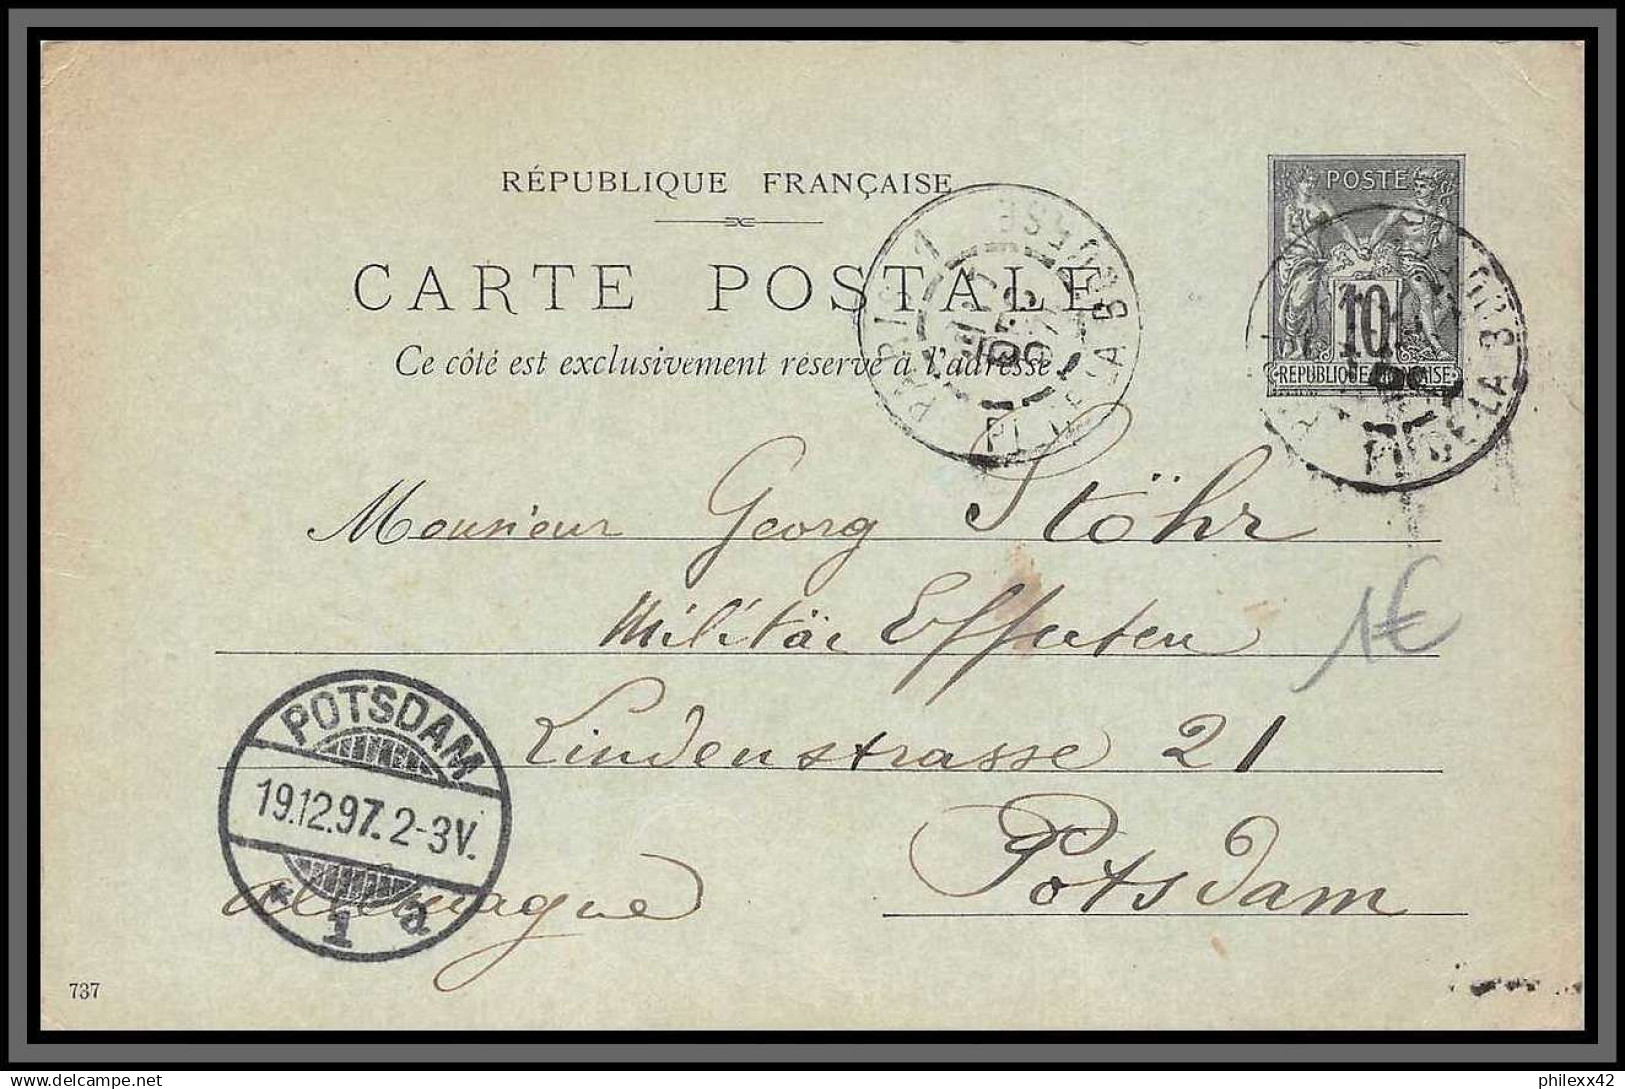 RÉPUBLIQUE FRANÇAISE
CARTE POSTALE
Ce côté est exclusivement réservé à l'adresse
POSTE
10
RÉPUBLIQUE FRANÇAISE
PARIS 1
PL. DE LA BOURSE
PL. DE LA BOU
Monsieur Georg Stöhr
Militär Effecten
1€
Lindenstrasse 21
Potsdam
Allemagne
POTSDAM
19.12.97. 2-3V.
* 1 a
737
philexx42